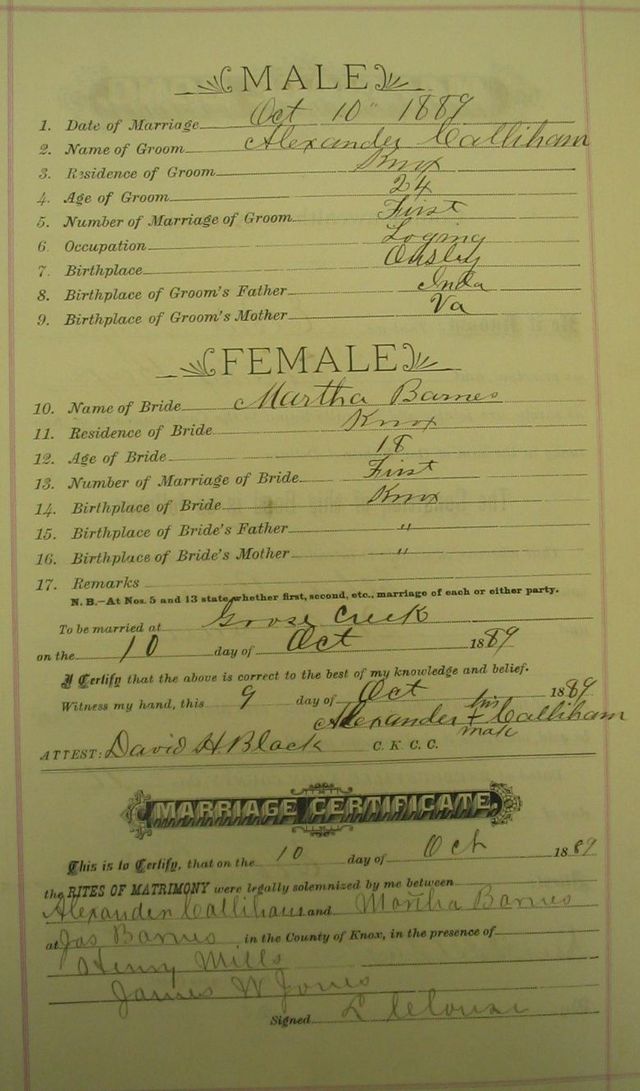 MALE
1. Date of Marriage Oct 10" 1889
2. Name of Groom Alexander Calliham
3. Residence of Groom Knox
4. Age of Groom 24
5. Number of Marriage of Groom First
6. Occupation Loging
7. Birthplace Owsley
8. Birthplace of Groom's Father Inda
9. Birthplace of Groom's Mother Va
FEMALE
10. Name of Bride Martha Barnes
11. Residence of Bride Knox
12. Age of Bride 18
13. Number of Marriage of Bride First
14. Birthplace of Bride Knox
15. Birthplace of Bride's Father "
16. Birthplace of Bride's Mother "
17. Remarks
N. B.—At Nos. 5 and 13 state whether first, second, etc., marriage of each or either party.
To be married at Goose Creek
on the 10 day of Oct 1889
I Certify that the above is correct to the best of my knowledge and belief.
Witness my hand, this 9 day of Oct 1889
Alexander his + mark Calliham
ATTEST: David H Black C. K. C. C.
MARRIAGE CERTIFICATE.
This is to Certify, that on the 10 day of Oct 1889
the RITES OF MATRIMONY were legally solemnized by me between
Alexander Calliham and Martha Barnes
at Jas Barnes, in the County of Knox, in the presence of
Henry Mills
James W Jones
Signed L